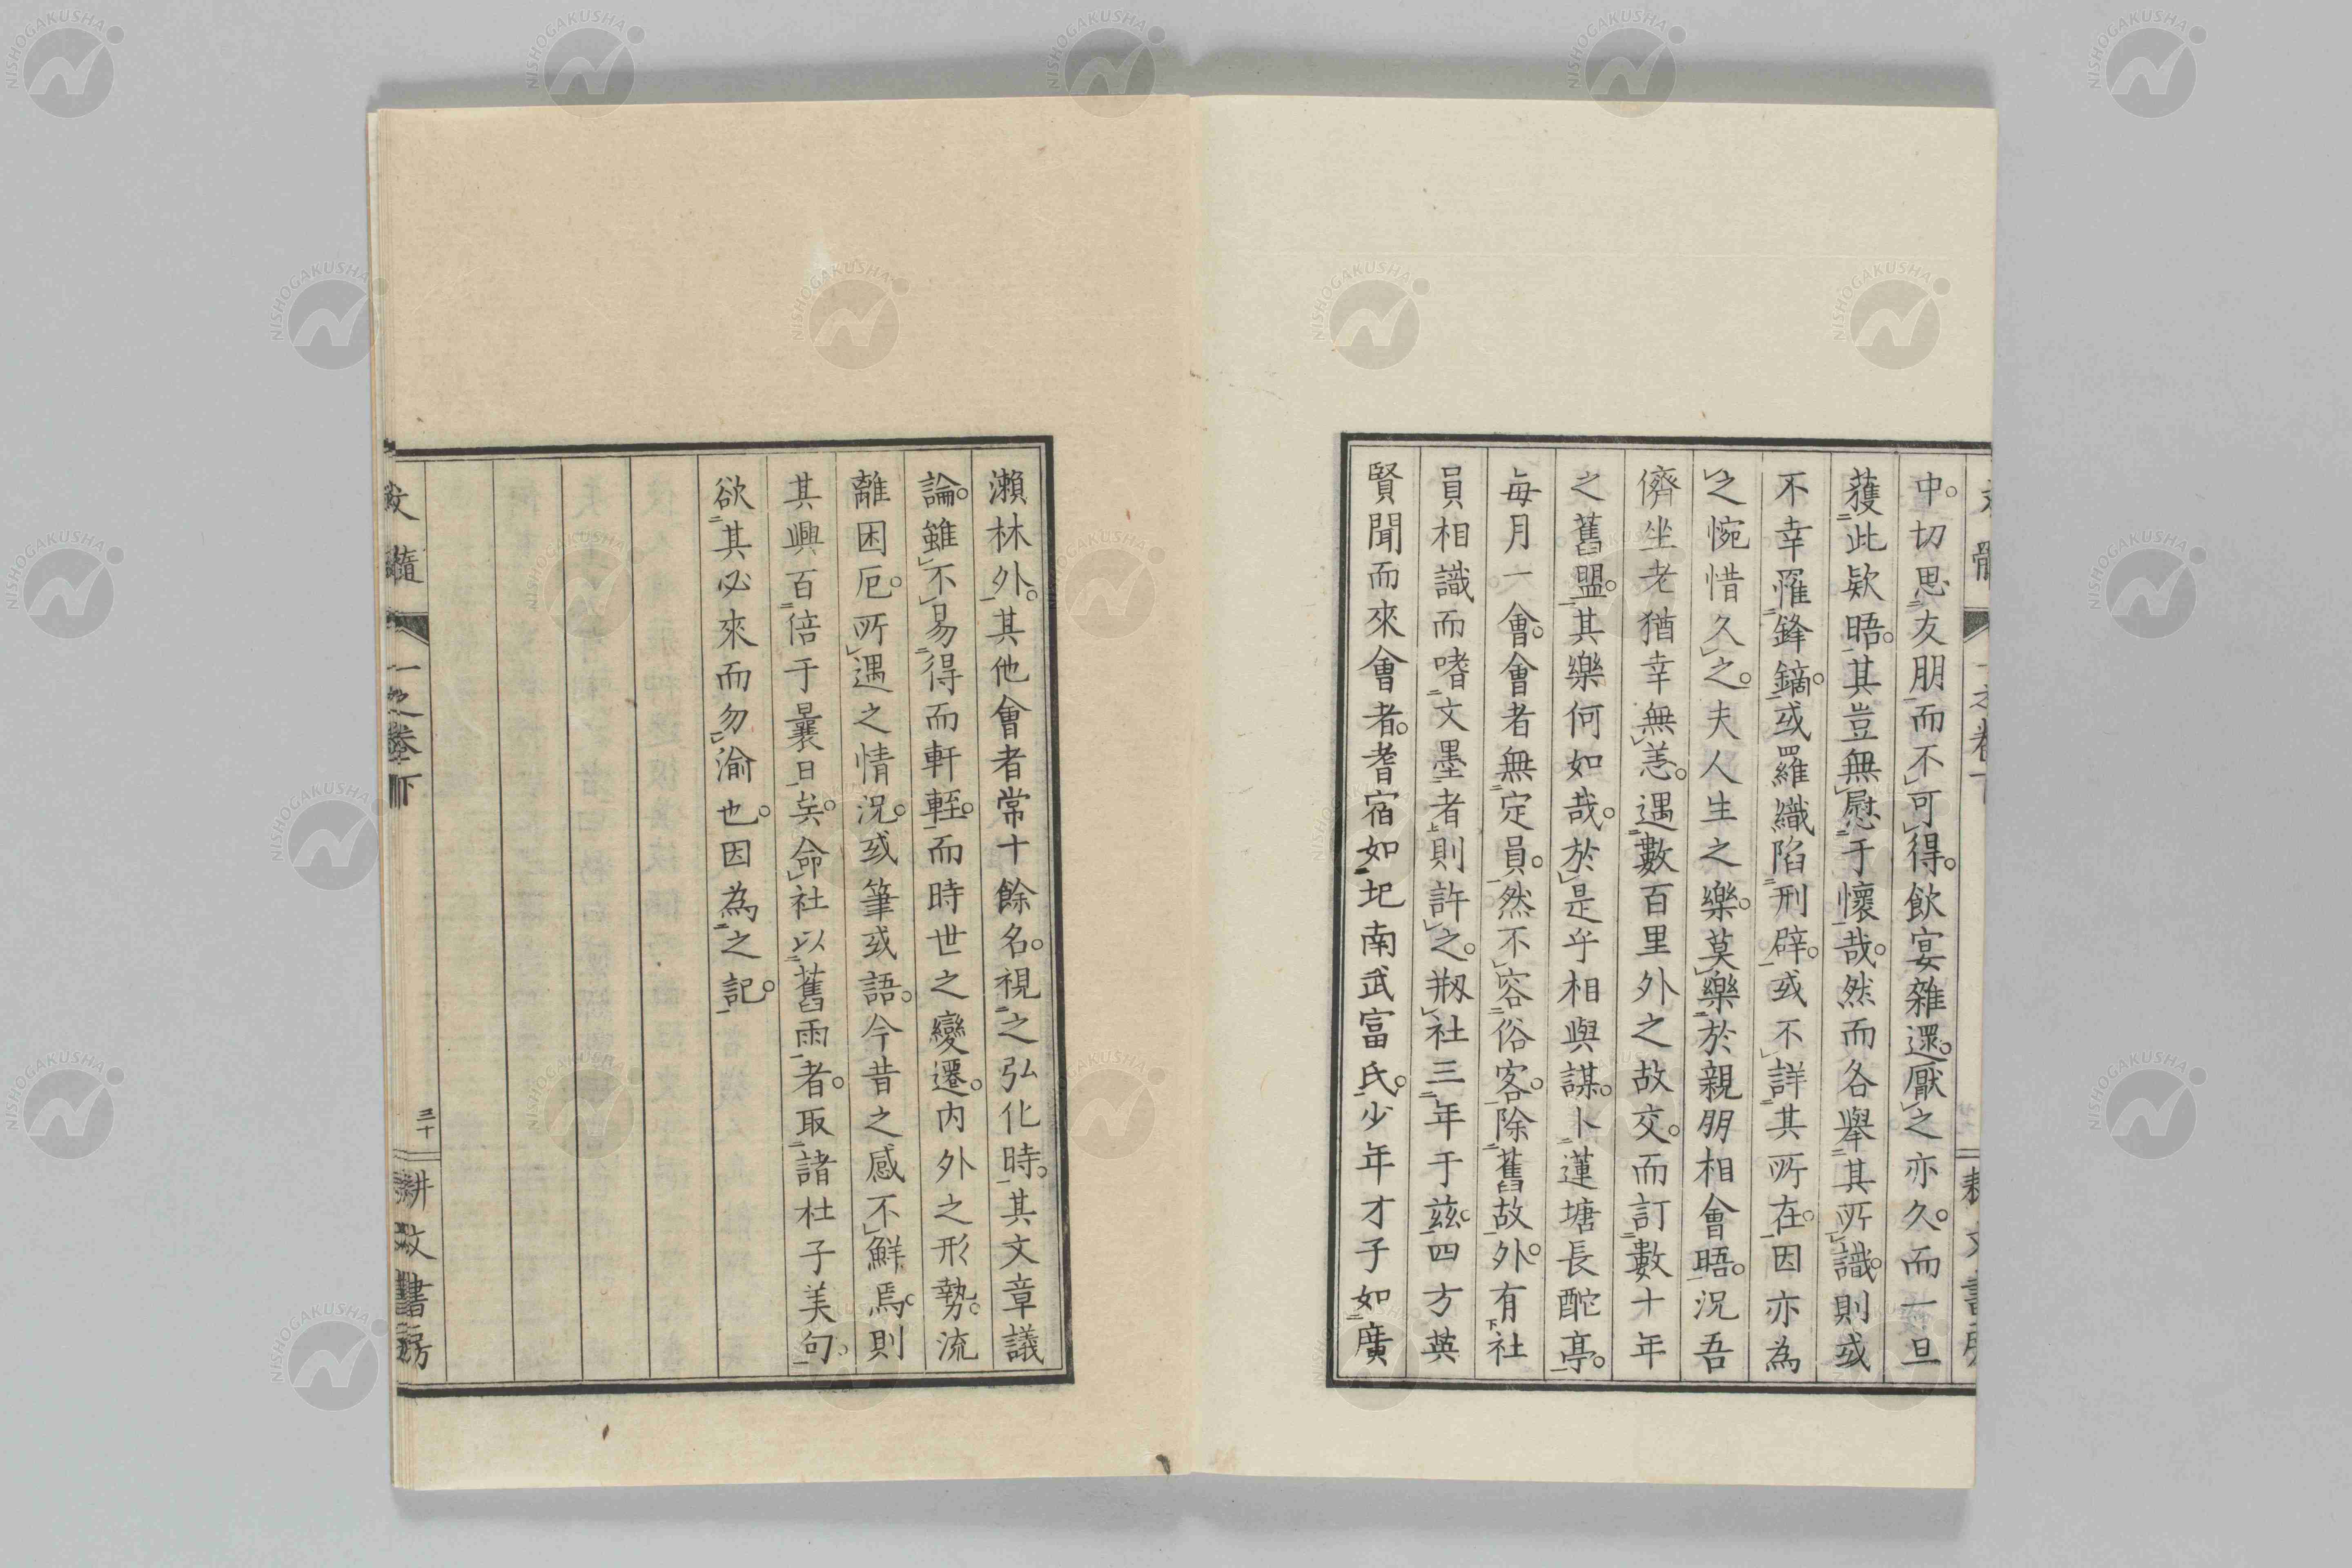 中。切思友朋而不可得。飲宴雜還。厭之亦久。而一旦
獲此欵晤。其豈無慰于懷哉。然而各擧其所識。則或
不幸罹鋒鏑。或羅織陷刑辟。或不詳其所在。因亦為
之惋惜久之。夫人生之樂。莫樂於親朋相會晤。況吾
儕坐老猶幸無恙。遇數百里外之故交。而訂數十年
之舊盟。其樂何如哉。於是乎相與謀。卜蓮塘長酡亭。
每月一會。會者無定員。然不容俗客。除舊故外。有社
員相識而嗜文墨者。則許之。剏社三年于茲。四方英
賢聞而來會者。耆宿如圯南武富氏。少年才子如廣
瀨林外。其他會者常十餘名。視之弘化時。其文章議
論。雖不易得而軒輊。而時世之變遷。內外之形勢。流
離困厄。所遇之情況。或筆或語。今昔之感不鮮焉。則
其興百倍于曩日矣。命社以舊雨者。取諸杜子美句。
欲其必來而勿渝也。因為之記。
文髓
一之卷下
三十
耕文書房
NISHOGAKUSHA